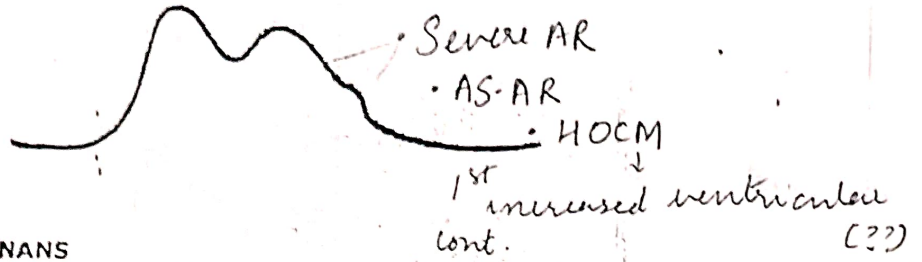 • Severe AR
• AS-AR
• HOCM
↓
1st increased ventricular
cont. (??)
NANS